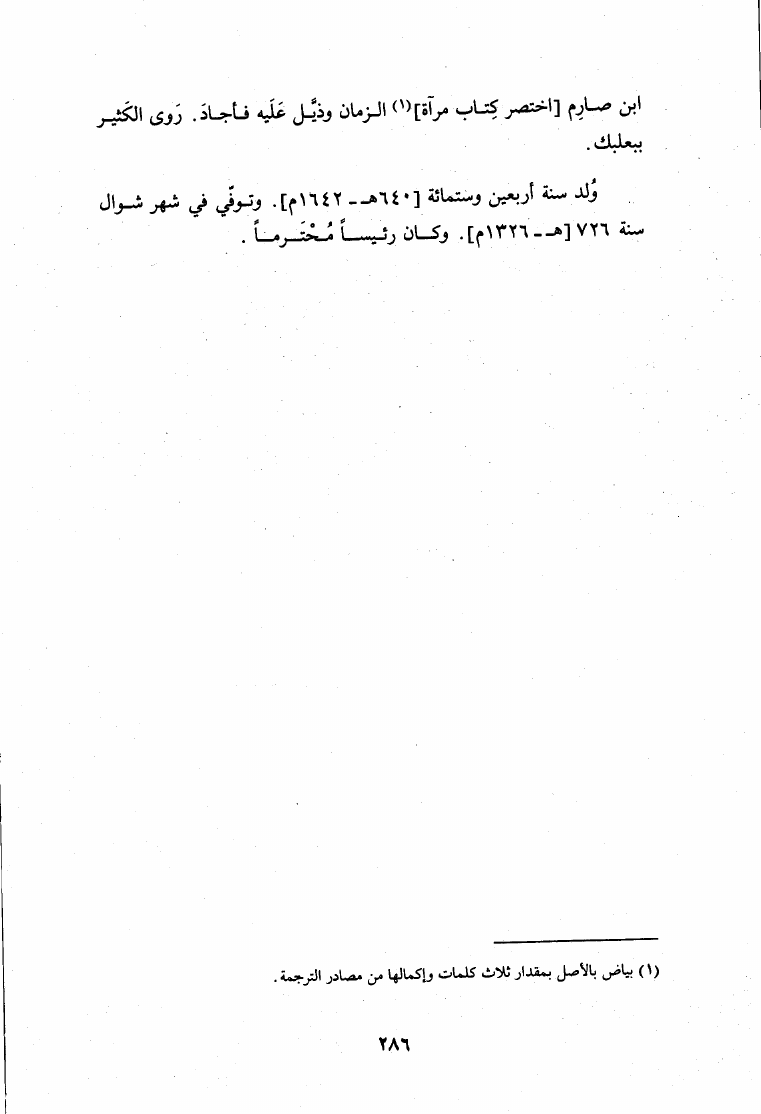 ابن صارِم [اختصر كِتاب مرآة](١) الزمان وذيَّل عَلَيه فأجادَ. رَوى الكَثير
ببعلبك.
وُلد سنة أربعين وستمائة [٦٤٠هـ ـ ١٦٤٢م]. وتوفّي في شهر شوال
سنة ٧٢٦ [هـ ـ ١٣٢٦م]. وكان رئيساً مُحْتَرماً.
(١) بياض بالأصل بمقدار ثلاث كلمات وإكمالها من مصادر الترجمة.
٢٨٦